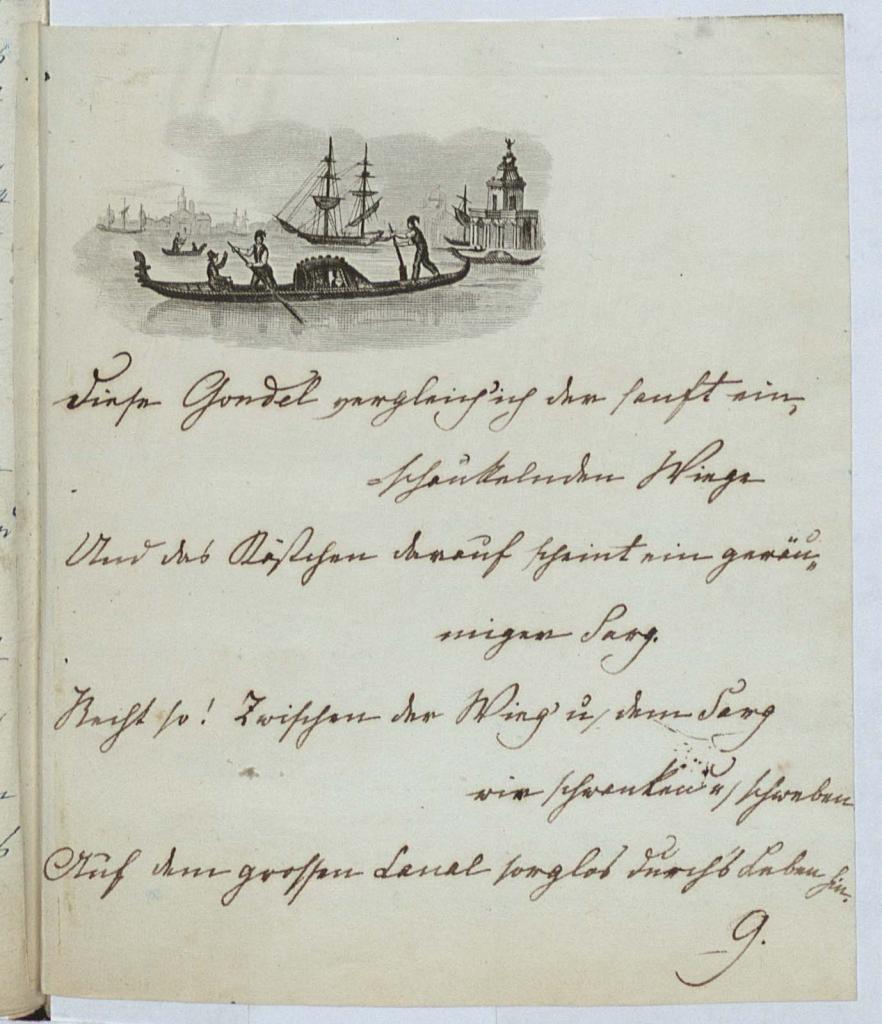 Diese Gondel vergleich' ich der sanft ein,
=schaukelnden Wiege
Und das Kästchen darauf scheint ein geräu„
miger Sarg.
Recht so! Zwischen der Wieg' u, dem Sarg
wir schwanken u, schweben
Auf dem grossen Canal sorglos durch's Leben hin.
G.